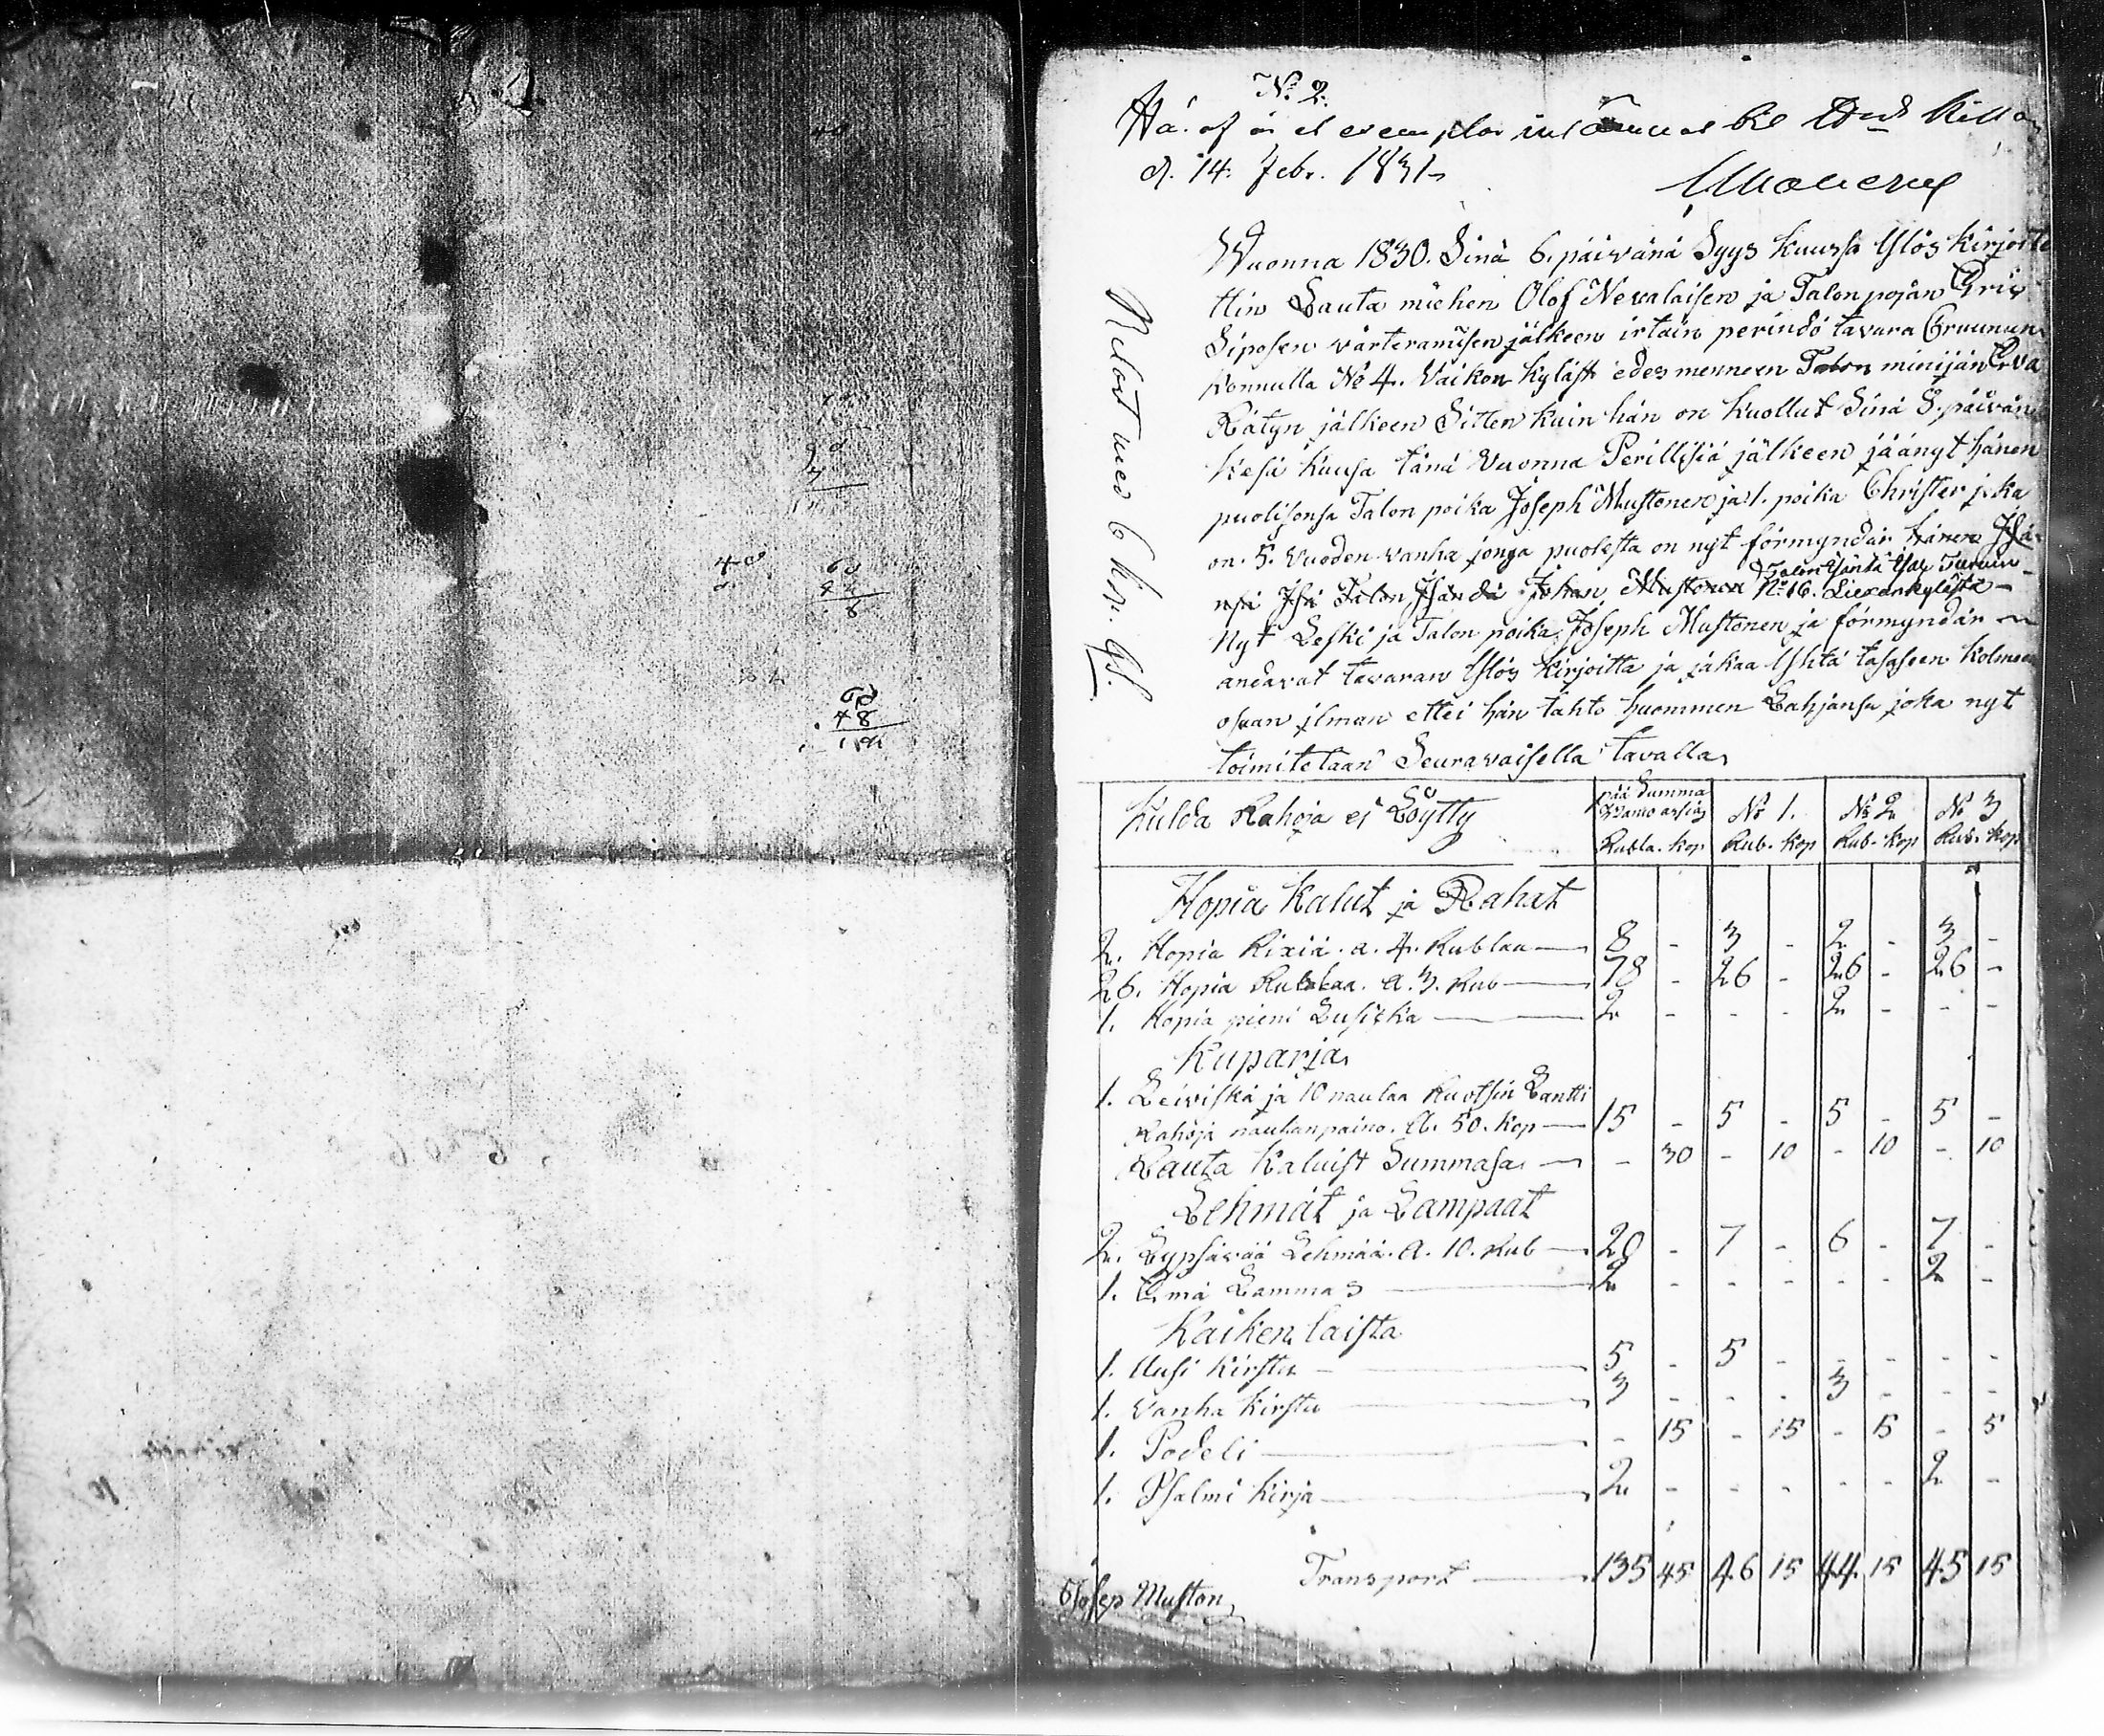 40
40
60
48
8
60
48
No 2.
Hä. af är et exemplar
d. 14. Febr. 1831
Wuonna 1830. Sinä 6. päivänä Syys kuussa Ylös kirjoite
ttin Lauta miehen Olof Nevalaisen ja Talon pojan Grix
Siposen värteramisen jälkeen irtain perindö tavara Cruunun
konnulla No 4. Vaikon kyläst edes menneen Talon minijän Eva
Rätyn jälkeen Sitten kuin hän on kuollut Sinä 8. päivän
Kesä kuusa tänä Vuonna Perillisiä jälkeen jäänyt hänen
puolisonsa Talon poika Joseph Mustonen ja 1. poika Christer joka
on. 5. Vuoden vanha jonga puolesta on nyt förmyndär hänen Isä
nsä Isä Talon Isändä Johan Mustonen No 16. Liexankylästä
Nyt Leski ja Talon poika Joseph Mustonen ja förmyndär
andavat tavaran Ylös kirjoitta ja jakaa Yhtä tasaseen kolmeen
osaan ilman ettei hän tahto huommen Lahjansa joka nyt
toimitetaan Seuravaisella tavalla
kulda Rahoja ei Löytty
pää Summa
Rubla. kop
No 1.
Rub. kop
No 2
Rub. kop
No 3
Rub. kop
Hopia Kalut ja Rahat
2. Hopia Rixiä. a. 4. Rublaa 8 - 3 - 2 - 3 -
26. Hopia Rublaa. a. 3. Rub 78 - 26 - 26 - 26 -
1. Hopia pieni Lusikka 2 - - - 2 - - -
Kuparia
1. Leiviskä ja 10 naulaa Ruotsin Lantti
Rahoja naulan paino. a. 50. kop 15 - 5 - 5 - 5 -
Rauta Kaluist Summasa - 30 - 10 - 10 - 10
Lehmät ja Lampaat
2. Lypsävää Lehmää. a. 10. Rub 20 - 7 - 6 - 7 -
1. Emä Lammas 2 - - - - - 2 -
Kaiken laista
1. Uusi kirstu 5 - 5 - - - - -
1. Vanha kirstu 3 - - - 3 - - -
1. Podeli - 15 - 15 - 15 - 5
1. Psalmi kirja 2 - - - - - 2 -
Transport 135 45 46 15 44 15 45 15
Josep Muston